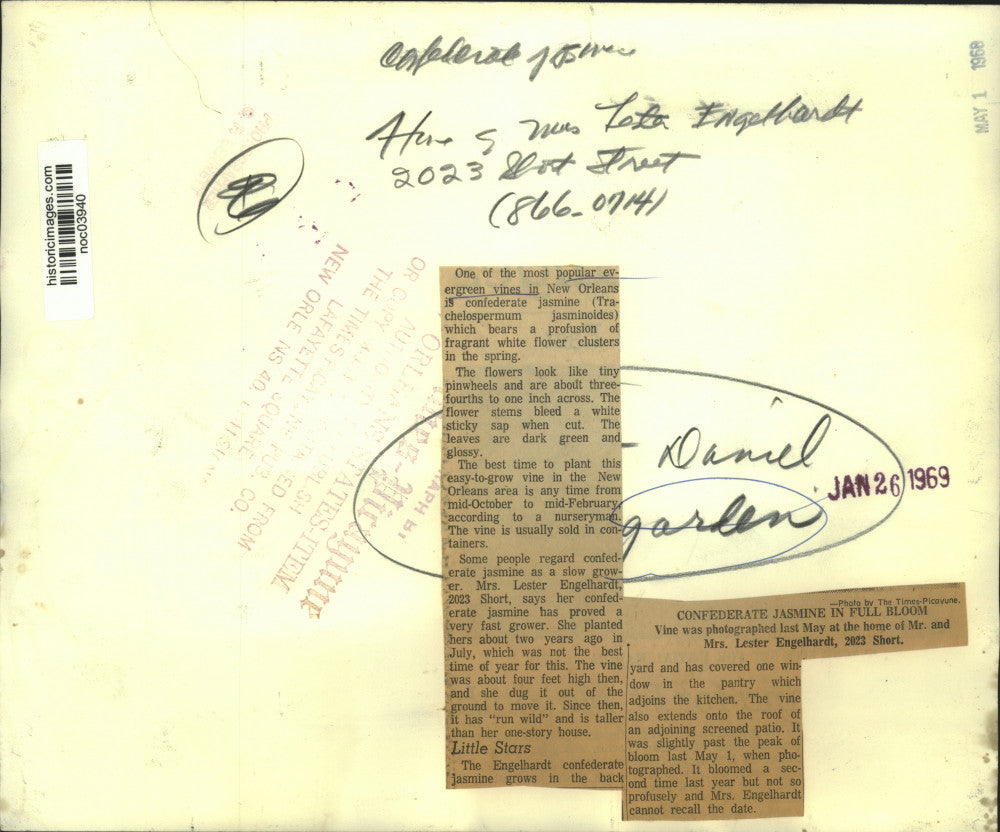 Confederate jasmine
MAY 1 1968
Home of Mrs Engelhardt
2023 Street
(866-0714)
historicimages.com
noc03940
OR COPY
NEW ORLE NS 40,
LAFAYETTE SQUARE
FROM
ATES-ITEM
One of the most popular ev-
ergreen vines in New Orleans
is confederate jasmine (Tra-
chelospermum jasminoides)
which bears a profusion of
fragrant white flower clusters
in the spring.
The flowers look like tiny
pinwheels and are about three-
fourths to one inch across. The
flower stems bleed a white
sticky sap when cut. The
leaves are dark green and
glossy.
The best time to plant this
easy-to-grow vine in the New
Orleans area is any time from
mid-October to mid-February,
according to a nurseryman.
The vine is usually sold in con-
tainers.
Some people regard confed-
erate jasmine as a slow grow-
er. Mrs. Lester Engelhardt,
2023 Short, says her confed-
erate jasmine has proved a
very fast grower. She planted
hers about two years ago in
July, which was not the best
time of year for this. The vine
was about four feet high then,
and she dug it out of the
ground to move it. Since then,
it has “run wild” and is taller
than her one-story house.
Little Stars
The Engelhardt confederate
jasmine grows in the back
Daniel
garden
JAN 26 1969
—Photo by The Times-Picayune.
CONFEDERATE JASMINE IN FULL BLOOM
Vine was photographed last May at the home of Mr. and
Mrs. Lester Engelhardt, 2023 Short.
yard and has covered one win-
dow in the pantry which
adjoins the kitchen. The vine
also extends onto the roof of
an adjoining screened patio. It
was slightly past the peak of
bloom last May 1, when pho-
tographed. It bloomed a sec-
ond time last year but not so
profusely and Mrs. Engelhardt
cannot recall the date.